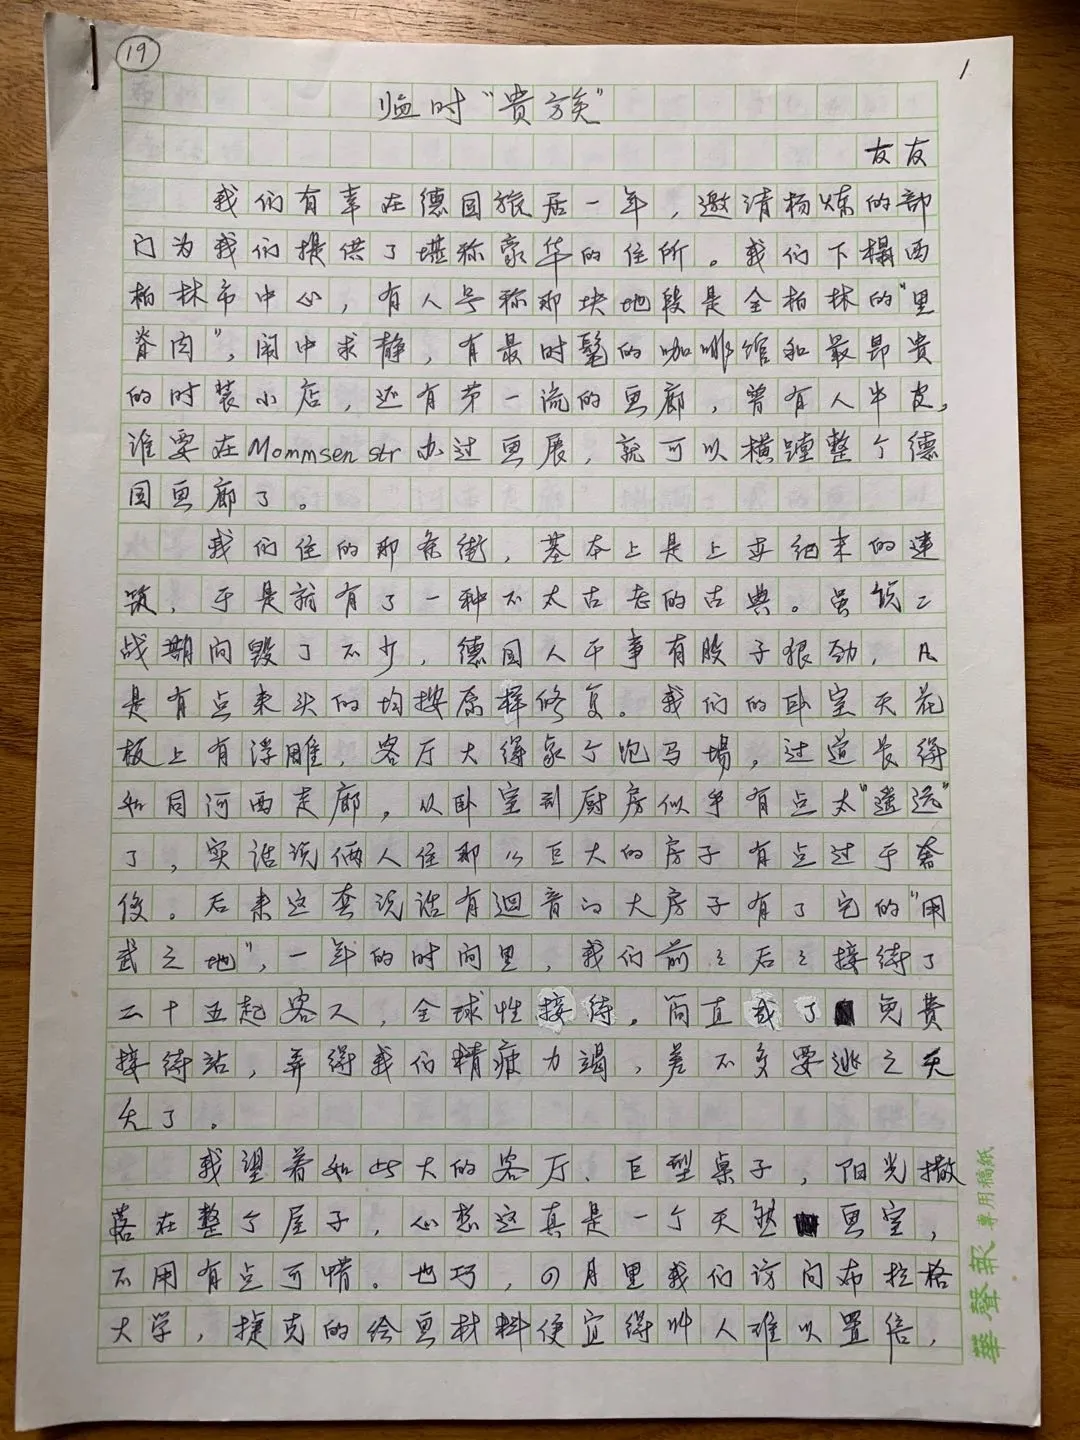 19
1
临时“贵族”
友友
我们有幸在德国旅居一年，邀请杨炼的部
门为我们提供了堪称豪华的住所。我们下榻西
柏林市中心，有人号称那块地段是全柏林的“里
脊肉”，闹中求静，有最时髦的咖啡馆和最昂贵
的时装小店，还有第一流的画廊，曾有人牛皮，
谁要在Mommsen str办过画展，就可以横蹚整个德
国画廊了。
我们住的那条街，基本上是上世纪末的建
筑，于是就有了一种不太古老的古典。虽然二
战期间毁了不少，德国人干事有股子狠劲，凡
是有点来头的均按原样修复。我们的卧室天花
板上有浮雕，客厅大得象个跑马場，过道长得
如同河西走廊，从卧室到厨房似乎有点太“遥远”
了，实话说俩人住那么巨大的房子有点过于奢
侈。后来这套说话有迴音的大房子有了它的“用
武之地”，一年的时间里，我们前前后后接待了
二十五起客人，全球性接待，简直成了免费
接待站，弄得我们精疲力竭，差不多要逃之夭
夭了。
我望着如此大的客厅、巨型桌子，阳光撒
落在整个屋子，心想这真是一个天然画室，
不用有点可惜。也巧，四月里我们访问布拉格
大学，捷克的绘画材料便宜得叫人难以置信，
華聲報 專用稿紙